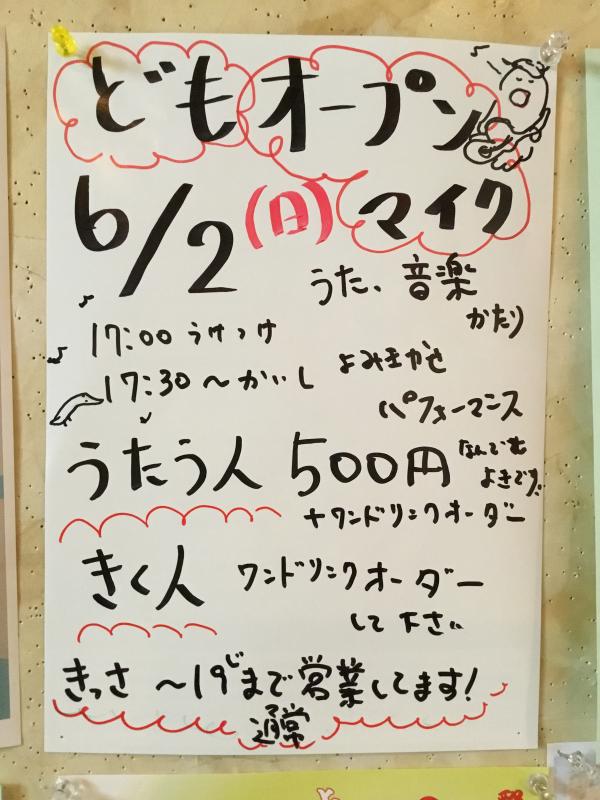 どもオープン
マイク
6/2(日)
うた、音楽
かたり
17:00 うけつけ
よみきかせ
17:30〜かいし
パフォーマンス
うたう人 500円
なんでも
よきです。
+ワンドリンクオーダー
きく人 ワンドリンクオーダー
して下さい
きっさ 〜19じまで営業してます!
通常